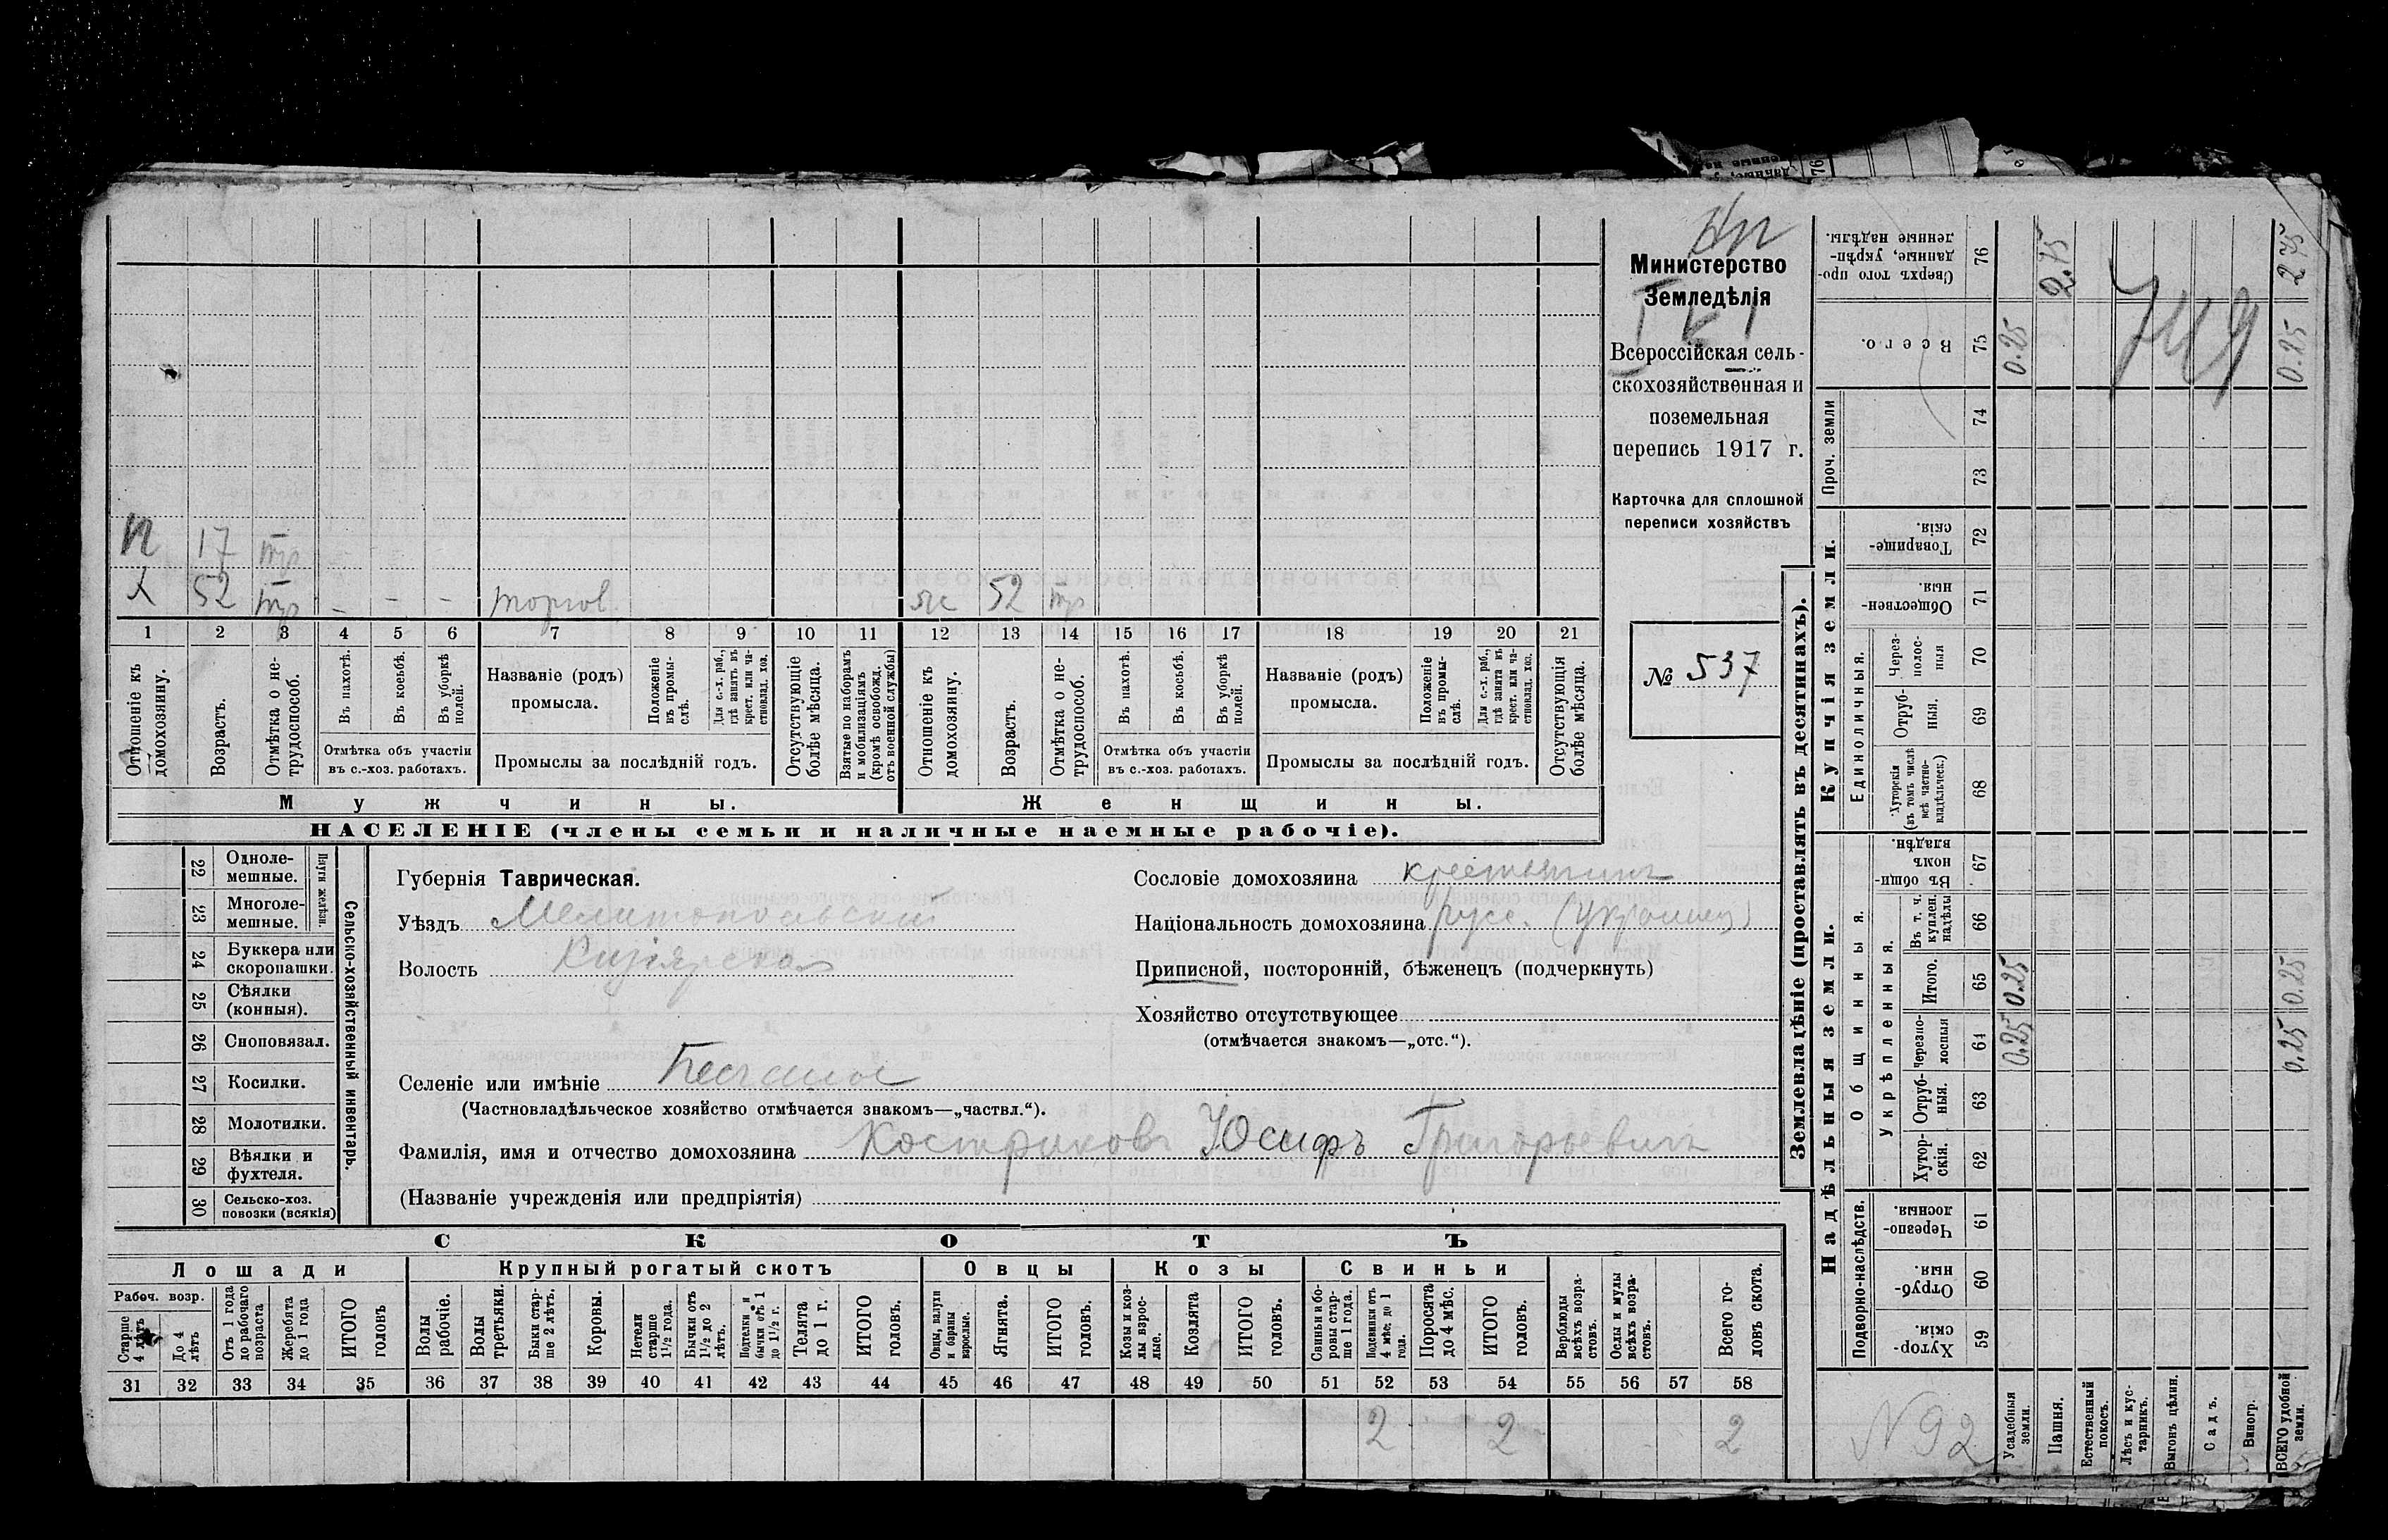 Нп
Министерство
Земледѣлія
Всероссійская сель-
скохозяйственная и
поземельная
перепись 1917 г.
Карточка для сплошной
переписи хозяйствъ
№ 537
п 17 тр
х 52 тр - - - торгов. ж 52 тр
1 2 3 4 5 6 7 8 9 10 11 12 13 14 15 16 17 18 19 20 21
Отношеніе къ домохозяину.
Возрастъ.
Отмѣтка о не-трудоспособ.
Въ пахотѣ.
Въ косьбѣ.
Въ уборкѣ полей.
Отмѣтка объ участіи
въ с.-хоз. работахъ.
Названіе (родъ)
промысла.
Положеніе въ промы-слѣ.
Для с.-х. раб., гдѣ занятъ въ крест. или ча-стновлад. хоз.
Промыслы за послѣдній годъ.
Отсутствующіе болѣе мѣсяца.
Взятые по наборамъ и мобилизаціямъ (кромѣ освобожд. отъ военной службы)
Отношеніе къ домохозяину.
Возрастъ.
Отмѣтка о не-трудоспособ.
Въ пахотѣ.
Въ косьбѣ.
Въ уборкѣ полей.
Отмѣтка объ участіи
въ с.-хоз. работахъ.
Названіе (родъ)
промысла.
Положеніе въ промы-слѣ.
Для с.-х. раб., гдѣ занята въ крест. или ча-стновлад. хоз.
Промыслы за послѣдній годъ.
Отсутствующія болѣе мѣсяца.
Мужчины.
Женщины.
НАСЕЛЕНІЕ (члены семьи и наличные наемные рабочіе).
22 Одноле-мешные.
23 Многоле-мешные.
Плуги желѣзн.
24 Буккера или скоропашки.
25 Сѣялки (конныя).
26 Сноповязал.
27 Косилки.
28 Молотилки.
29 Вѣялки и фухтеля.
30 Сельско-хоз. повозки (всякія)
Сельско-хозяйственный инвентарь.
Губернія Таврическая.
Уѣздъ Мелитопольский
Волость Кизіярская
Сословіе домохозяина крестьянинъ
Національность домохозяина русс. (украинец)
Приписной, посторонній, бѣженецъ (подчеркнуть)
Хозяйство отсутствующее
(отмѣчается знакомъ—„отс.“).
Селеніе или имѣніе
(Частновладѣльческое хозяйство отмѣчается знакомъ—„частвл.“).
Фамилія, имя и отчество домохозяина Костриковъ Юсифъ Григорьевичъ
(Названіе учрежденія или предпріятія)
СКОТЪ
Лошади
Крупный рогатый скотъ
Овцы
Козы
Свиньи
Рабоч. возр.
Старше 4 лѣтъ
До 4 лѣтъ
Отъ 1 года до рабочаго возраста
Жеребята до 1 года
ИТОГО головъ
Волы рабочіе.
Волы третьяки.
Быки стар-ше 2 лѣтъ.
Коровы.
Нетели старше 1½ года.
Бычки отъ 1½ до 2 лѣтъ.
Подтелки и бычки отъ 1 до 1½ г.
Телята до 1 г.
ИТОГО головъ.
Овцы, валухи и бараны взрослые.
Ягнята.
ИТОГО головъ.
Козы и коз-лы взрос-лые.
Козлята
ИТОГО головъ.
Свиньи и бо-ровы стар-ше 1 года.
Подсвинки отъ 4 мѣс. до 1 года.
Поросята до 4 мѣс.
ИТОГО головъ.
Верблюды всѣхъ возра-стовъ.
Ослы и мулы всѣхъ возра-стовъ.
Всего го-ловъ скота.
31 32 33 34 35 36 37 38 39 40 41 42 43 44 45 46 47 48 49 50 51 52 53 54 55 56 57 58
2 2 2
Землевладѣніе (проставлять въ десятинахъ).
Купчія земли.
Надѣльныя земли.
Сверхъ того про-данные, укрѣп-ленные надѣлы. 76 2.75 2.75
Всего. 75 0.25 0.25
Проч. земли 74
73
Товарище-скія. 72
Обществен-ныя. 71
Единоличныя.
Через-полос-ныя 70
Отруб-ныя. 69
Хуторскія (въ томъ числѣ всѣ частно-владѣльческ.) 68
Общинныя.
Въ общи-номъ владѣн. 67
Укрѣпленныя.
Въ т. ч. куплен. надѣлы 66
Итого. 65 0.25 0.25
Черезпо-лосныя 64 0.25 0.25
Отруб-ныя. 63
Хутор-скія. 62
Подворно-наслѣдств.
Черезпо-лосныя. 61
Отруб-ныя. 60
Хутор-скія. 59
N 92
Усадебныя земли.
Пашня.
Естественный покосъ.
Лѣсъ и кус-тарникъ.
Выгонъ цѣлин.
Садъ.
Виногр.
ВСЕГО удобной земли.